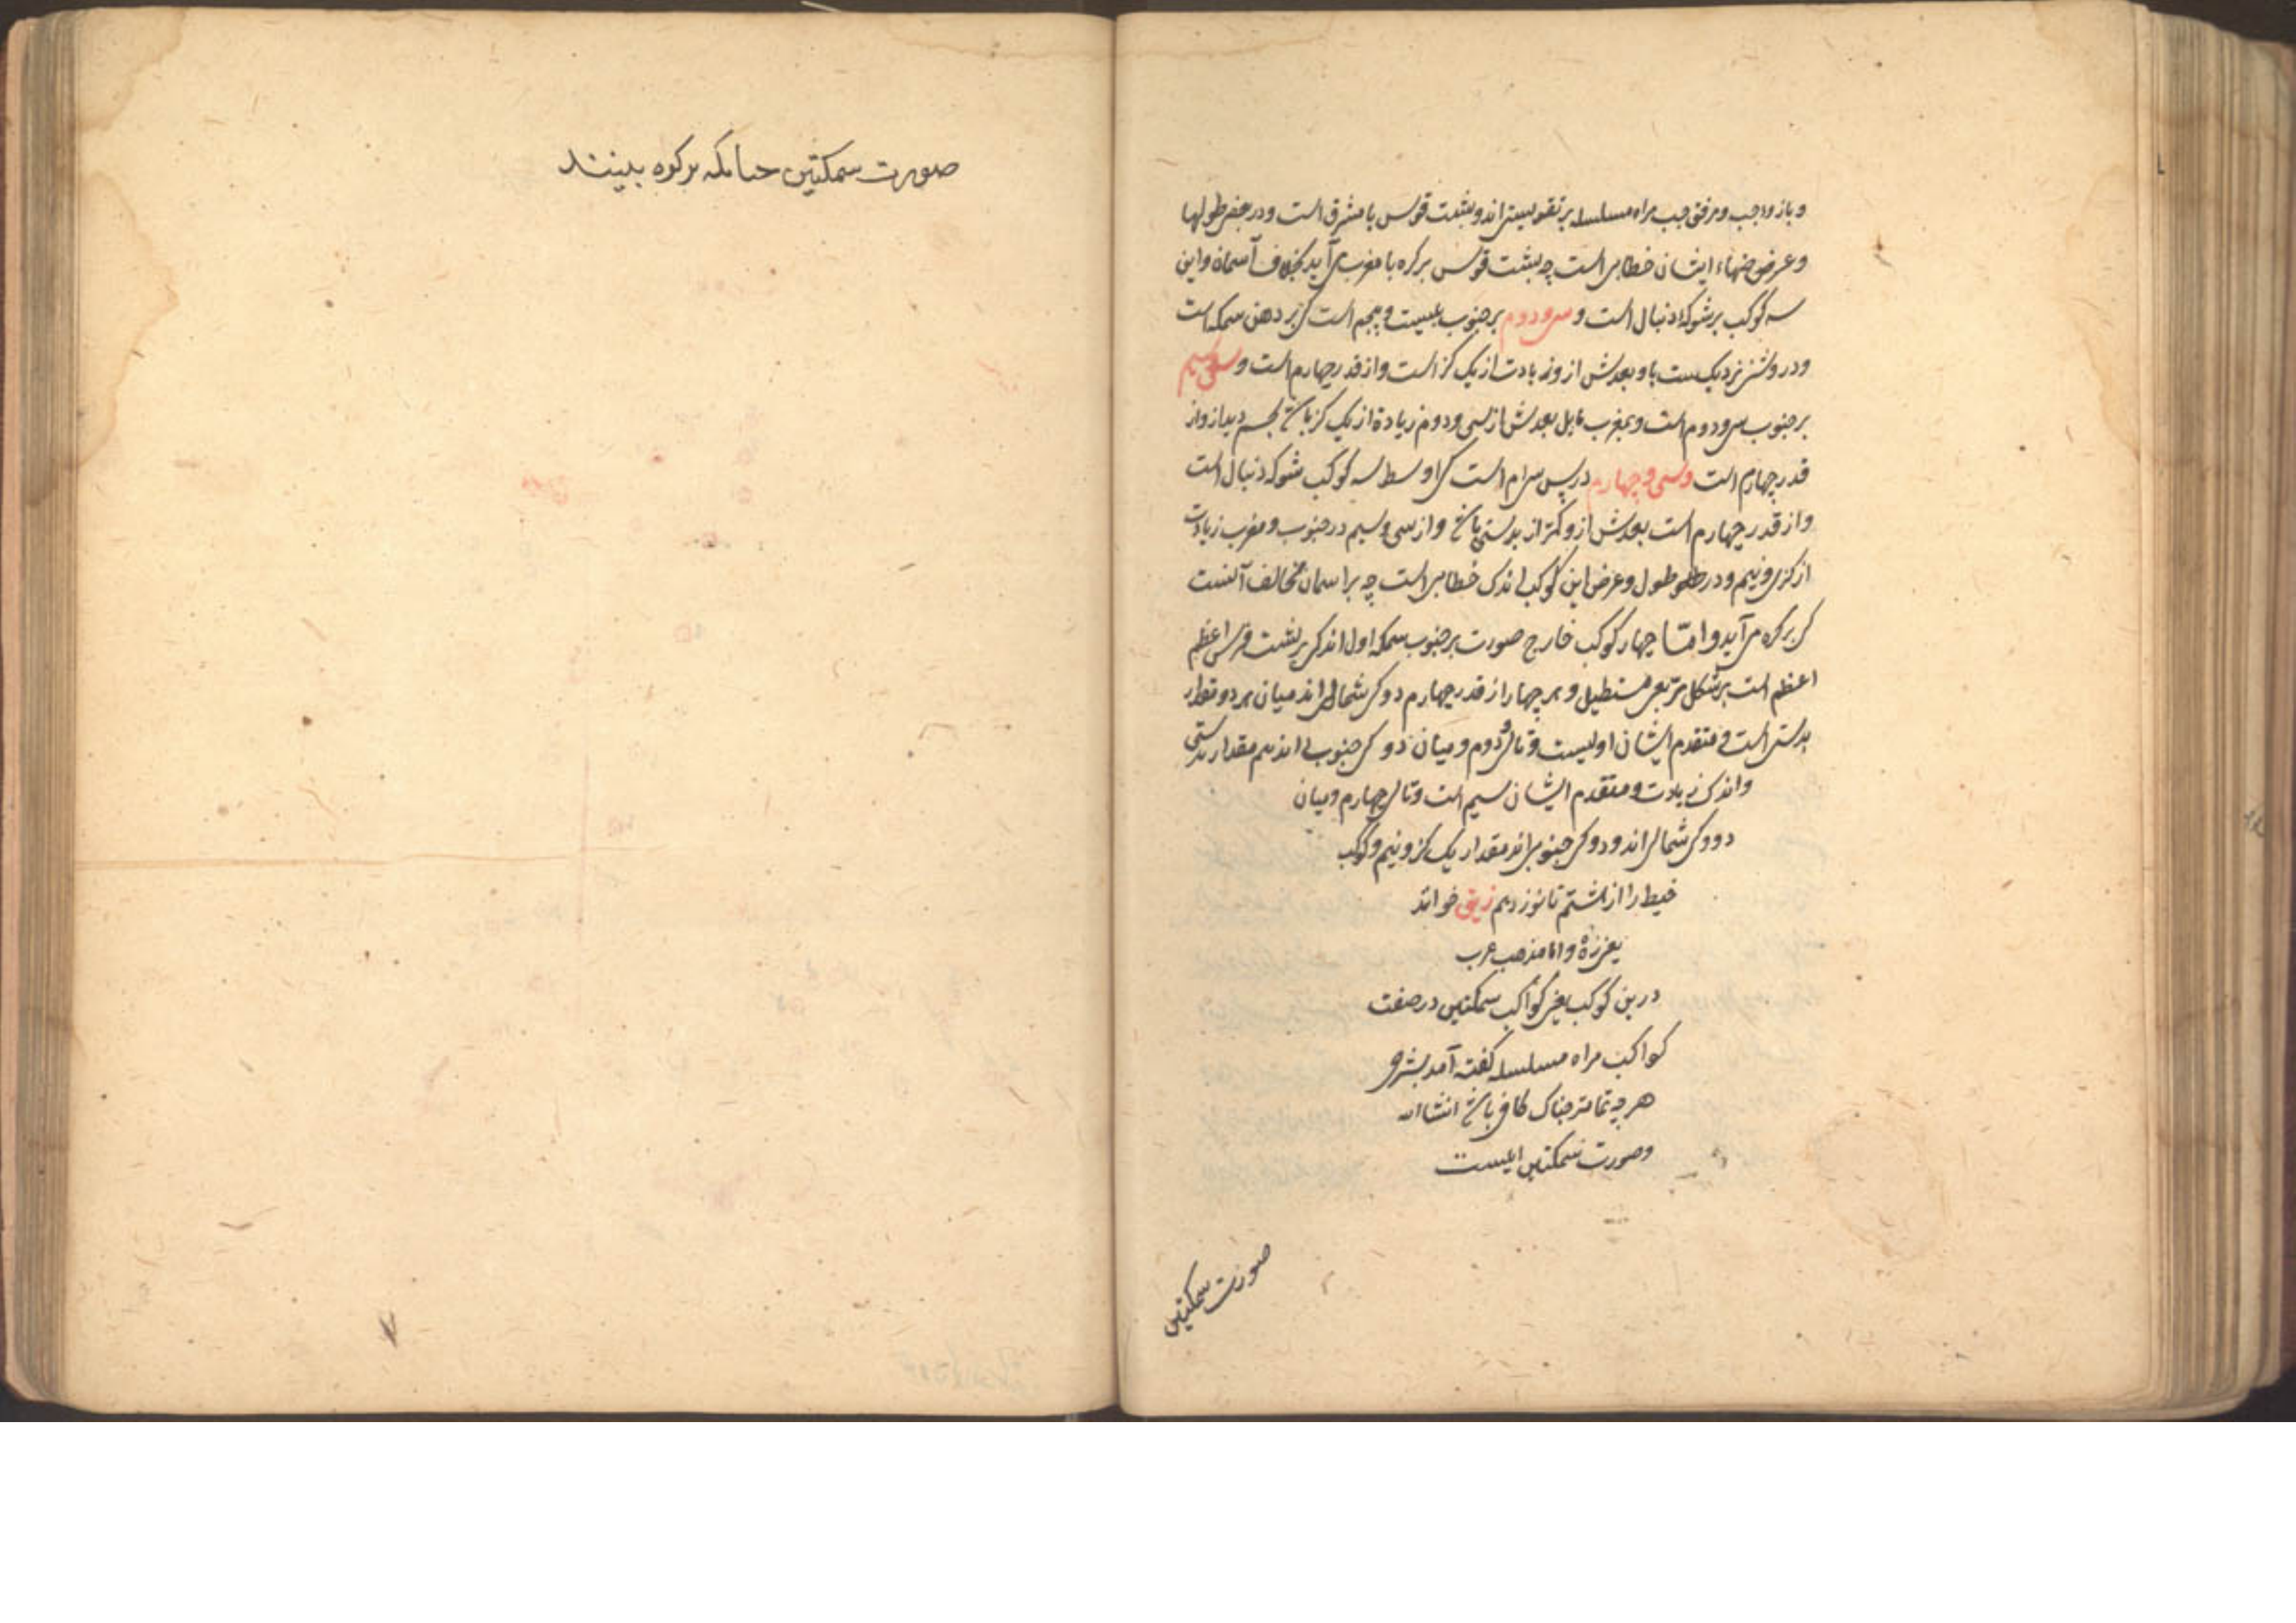 و بازو و جیب و مرفق جیب مراه مسلسله بر تقویسی اند و پشت قوس با مشرق است و در بعض طولها
و عرضهاء ایشان خطایی است چه پشت قوس بر کره با مغرب می آید بخلاف آسمان و این
سه کوکب بر شوکه دنبال است و سی و دوم بر جنوب بیست و پنجم است که بر دهن سمکه است
و در روشنی نزدیکست باو بعدش ازو زیادت از یک کز است و از قدر چهارم است و سی و سیم
بر جنوب سی و دوم است و بمغرب مایل بعدش از سی و دوم زیادة از یک کز باشد بحسب دیدار و از
قدر چهارم است و سی و چهارم در پس سی ام است که اوسط سه کوکب شوکه دنبال است
و از قدر چهارم است بعدش ازو کمتر از بدستی باشد و از سی و سیم در جنوب و مغرب زیادت
از کزی و نیم و در طول و عرض این کوکب اندک خطایی است چه بر اسمان مخالف آنست
که بر کره می آید و امّا چهار کوکب خارج صورت بر جنوب سمکه اول اند که بر پشت فرس اعظم
اعظم است بر شکل مربعی مستطیل و هر چهار از قدر چهارم دو که شمالی اند میان هر دو مقدار
بدستی است و متقدم ایشان اولیست و تالی دوم و میان دو که جنوبی اند هم مقدار بدستی
و اندکی زیادت و متقدم ایشان سیم است و تالی چهارم و میان
دو که شمالی اند و دو که جنوبی اند مقدار یک کز و نیم و کوکب
خیط را از هشتم تا نوزدهم زیق خوانند
یعنی زه و اما مذهب عرب
درین کوکب یعنی کواکب سمکتین در صفت
کواکب مراه مسلسله کفته آمد بشرحی
هر چه تمامتر جنانک کافی باشد انشاالله
و صورت سمکتین اینست
صورت سمکتین
صورت سمکتین جنانکه بر کره بینند